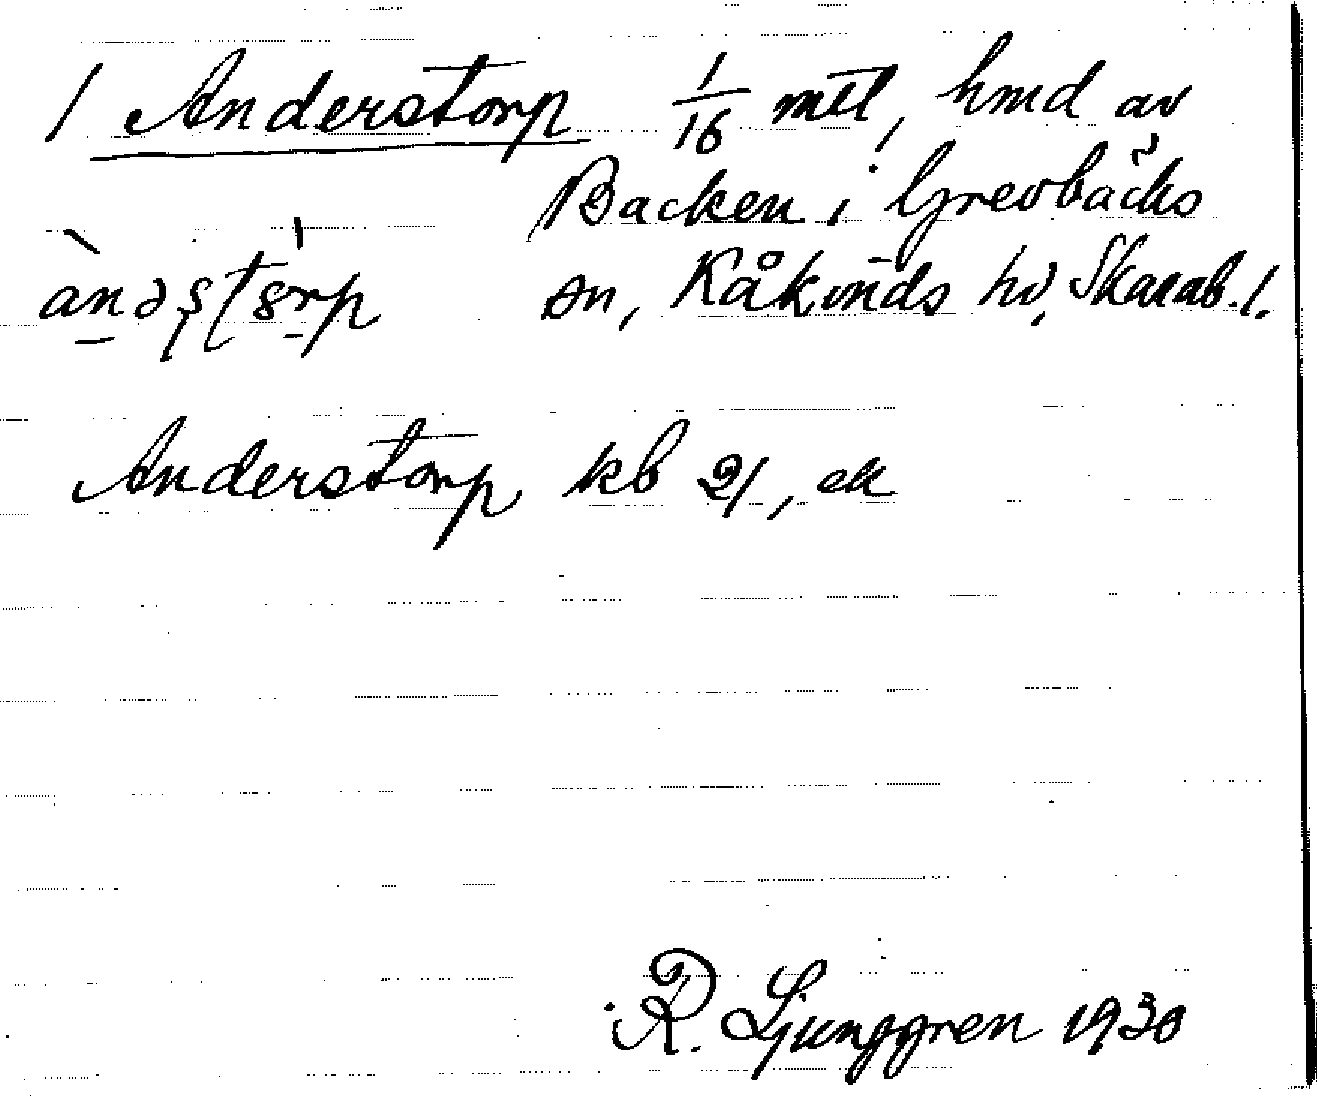 1 Anderstorp 1/16 mtl, hmd av
Backen i Grevbäcks
sn, Kåkinds hd, Skarab. l.
Anderstorp kb 21, ek
R. Ljunggren 1930